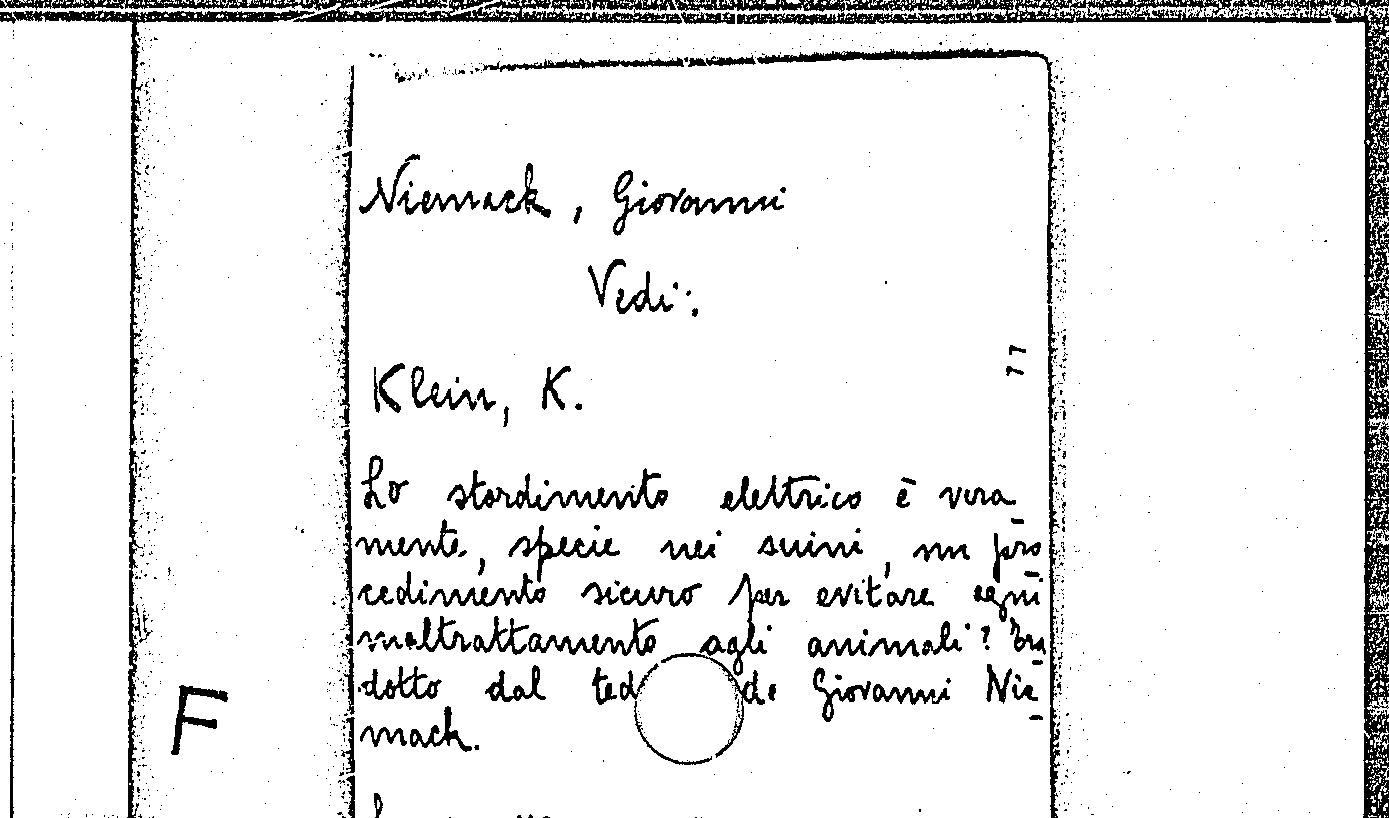 Niemack, Giovanni
Vedi:
77
Klein, K.
Lo stordimento elettrico è vera
mente, specie nei suini, un pro
cedimento sicuro per evitare ogni
maltrattamento agli animali? Tra
dotto dal ted de Giovanni Nie
mack.
F